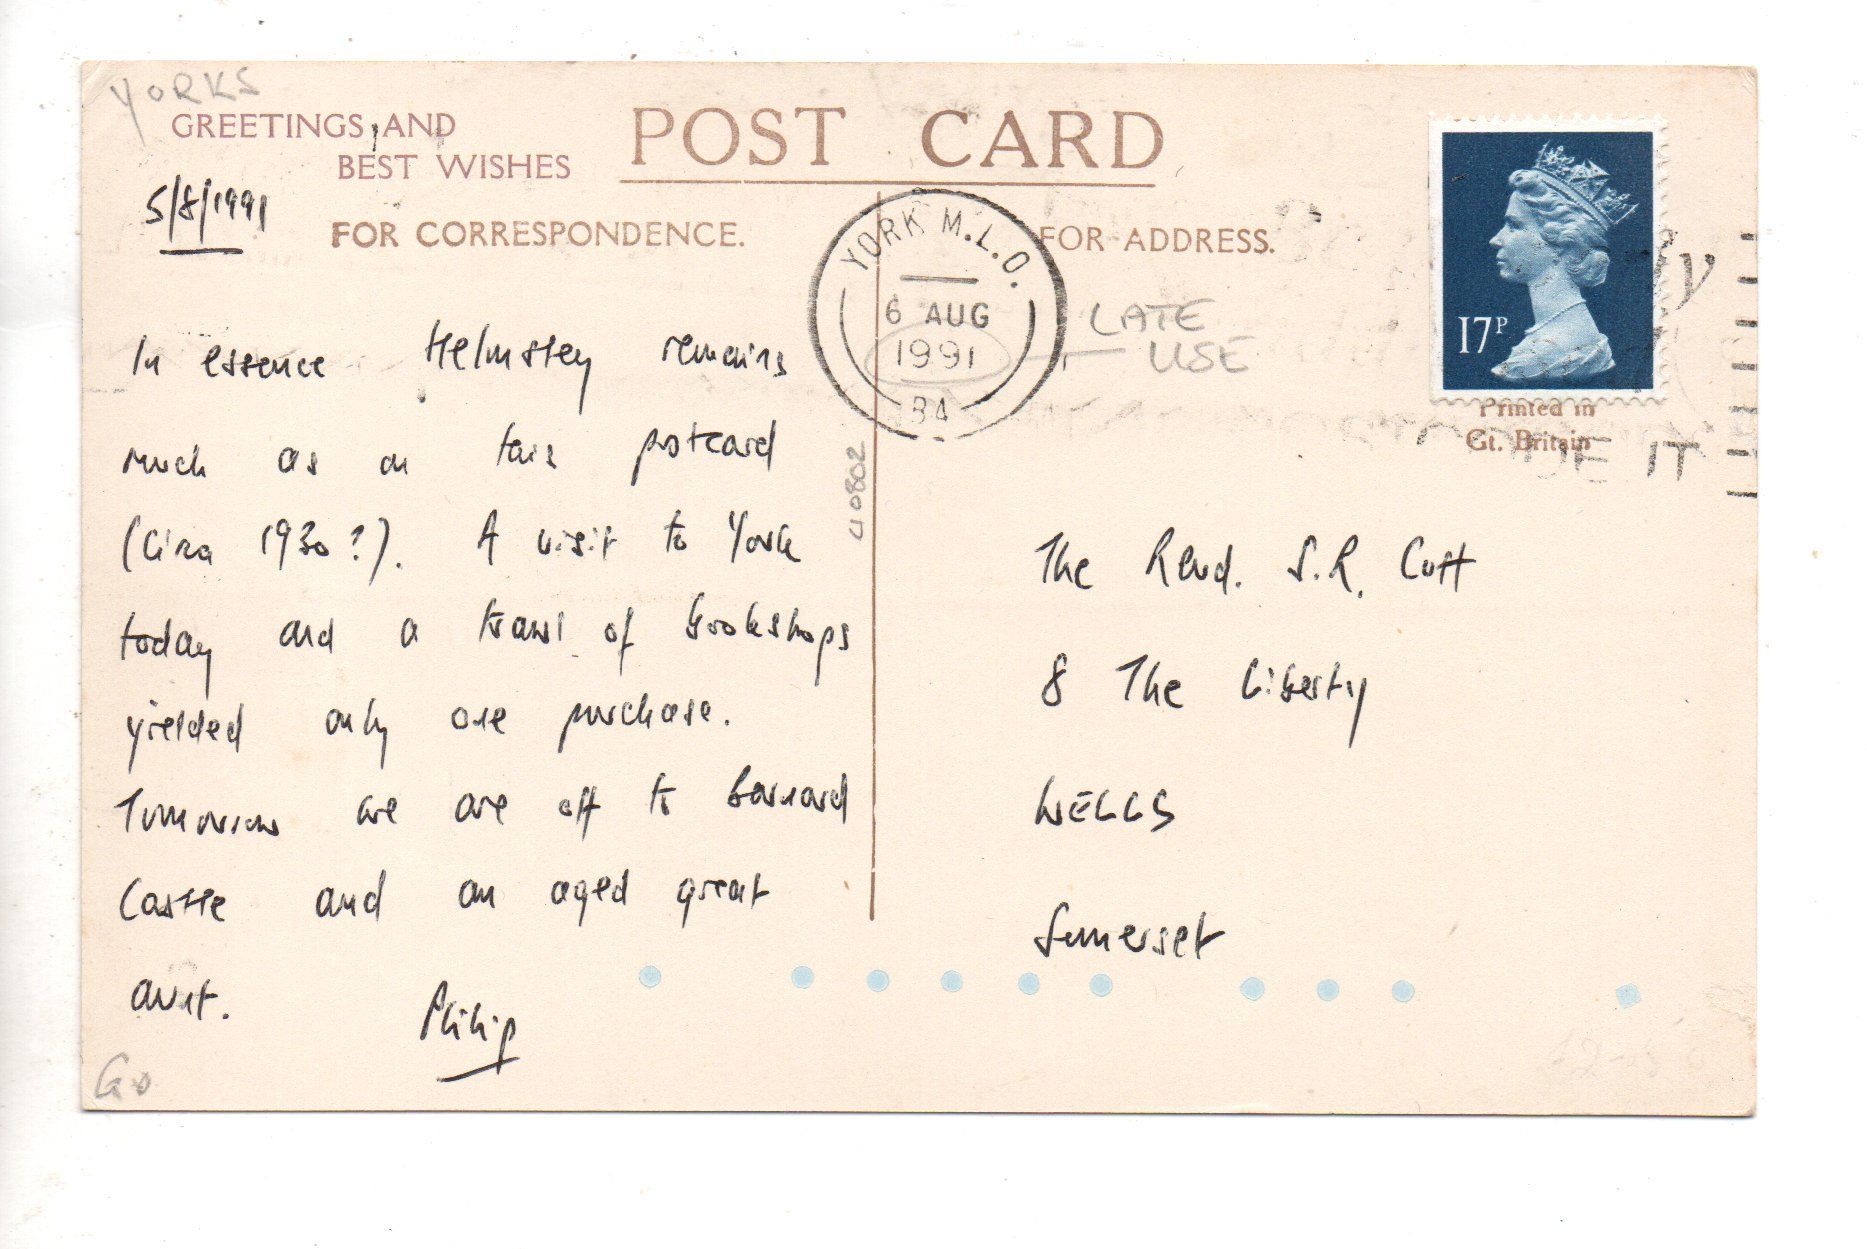 YORKS
GREETINGS AND
BEST WISHES
POST CARD
5/8/1991
FOR CORRESPONDENCE.
FOR ADDRESS.
YORK M.L.O.
6 AUG
1991
LATE
USE
17P
Printed in
Gt. Britain
IT
40802
In essence Helmsley remains
much as on this postcard
(circa 1930?). A visit to York
today and a trawl of bookshops
yielded only one purchase.
Tomorrow we are off to Barnard
Castle and an aged great
aunt. Philip
The Revd. S.R. Cutt
8 The Liberty
WELLS
Somerset